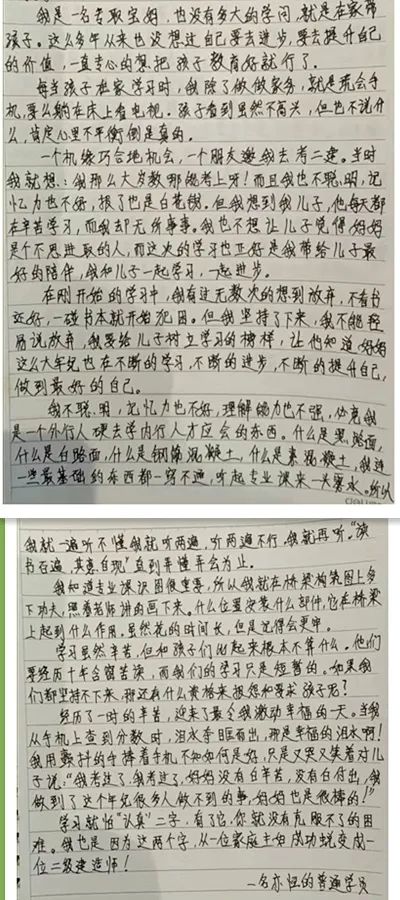 我是一名专职宝妈,也没有多大的学问,就是在家带
孩子。这么多年从来也没想过自己要去进步,要去提升自己
的价值,一直专心的想把孩子教育好就行了。
每当孩子在家学习时,我除了做做家务,就是玩会手
机,要么躺在床上看电视。孩子看到虽然不高兴,但也不说什
么,肯定心里不平衡倒是真的。
一个机缘巧合地机会,一个朋友邀我去考二建。当时
我就想:我那么大岁数哪能考上呀!而且我也不聪明,记
忆力也不好,报了也是白花钱。但我想到我儿子,他每天都
在辛苦学习,而我却无所事事。我也不想让儿子觉得妈妈
是个不思进取的人,而这次的学习也正好是我带给儿子最
好的陪伴,我和儿子一起学习,一起进步。
在刚开始的学习中,我有过无数次的想到放弃,不看书
还好,一碰书本就开始犯困。但我坚持了下来,我不能轻
易说放弃,我要给儿子树立学习的榜样,让他知道妈妈
这么大年纪也在不断的学习,不断的进步,不断的提升自己,
做到最好的自己。
我不聪明,记忆力也不好,理解能力也不强,毕竟我
是一个外行人硬去学内行人才应会的东西。什么是黑路面,
什么是白路面,什么是钢筋混凝土,什么是素混凝土,我连
一些最基础的东西都一窍不通,听起专业课来一头雾水。所以
我就一遍听不懂我就听两遍,听两遍不行,我就再听。“读
书百遍,其意自现”直到弄懂弄会为止。
我知道专业课识图很重要,所以我就在桥梁构造图上多
下功夫,照着老师讲的画下来。什么位置安装什么部件,它在桥梁
上起到什么作用。虽然花的时间长,但是记得会更牢。
学习虽然辛苦,但和孩子们比起来根本不算什么。他们
要经历十年寒窗苦读,而我们的学习只是短暂的。如果我
们都坚持不下来,那还有什么资格来抱怨和要求孩子呢?
经历了一时的辛苦,迎来了最令我激动幸福的一天。当我
从手机上查到分数时,泪水夺眶而出,那是幸福的泪水啊!
我用颤抖的手捧着手机不知如何是好,只是又哭又笑着对儿
子说:“我考过了,我考过了,妈妈没有白辛苦,没有白付出,我
做到了这个年纪很多人做不到的事,妈妈也是很棒的!”
学习就怕“认真”二字,有了它,你就没有克服不了的困
难。我也是因为这两个字,从一位家庭主妇成功蜕变成一
位二级建造师!
一名亦恒的普通学员